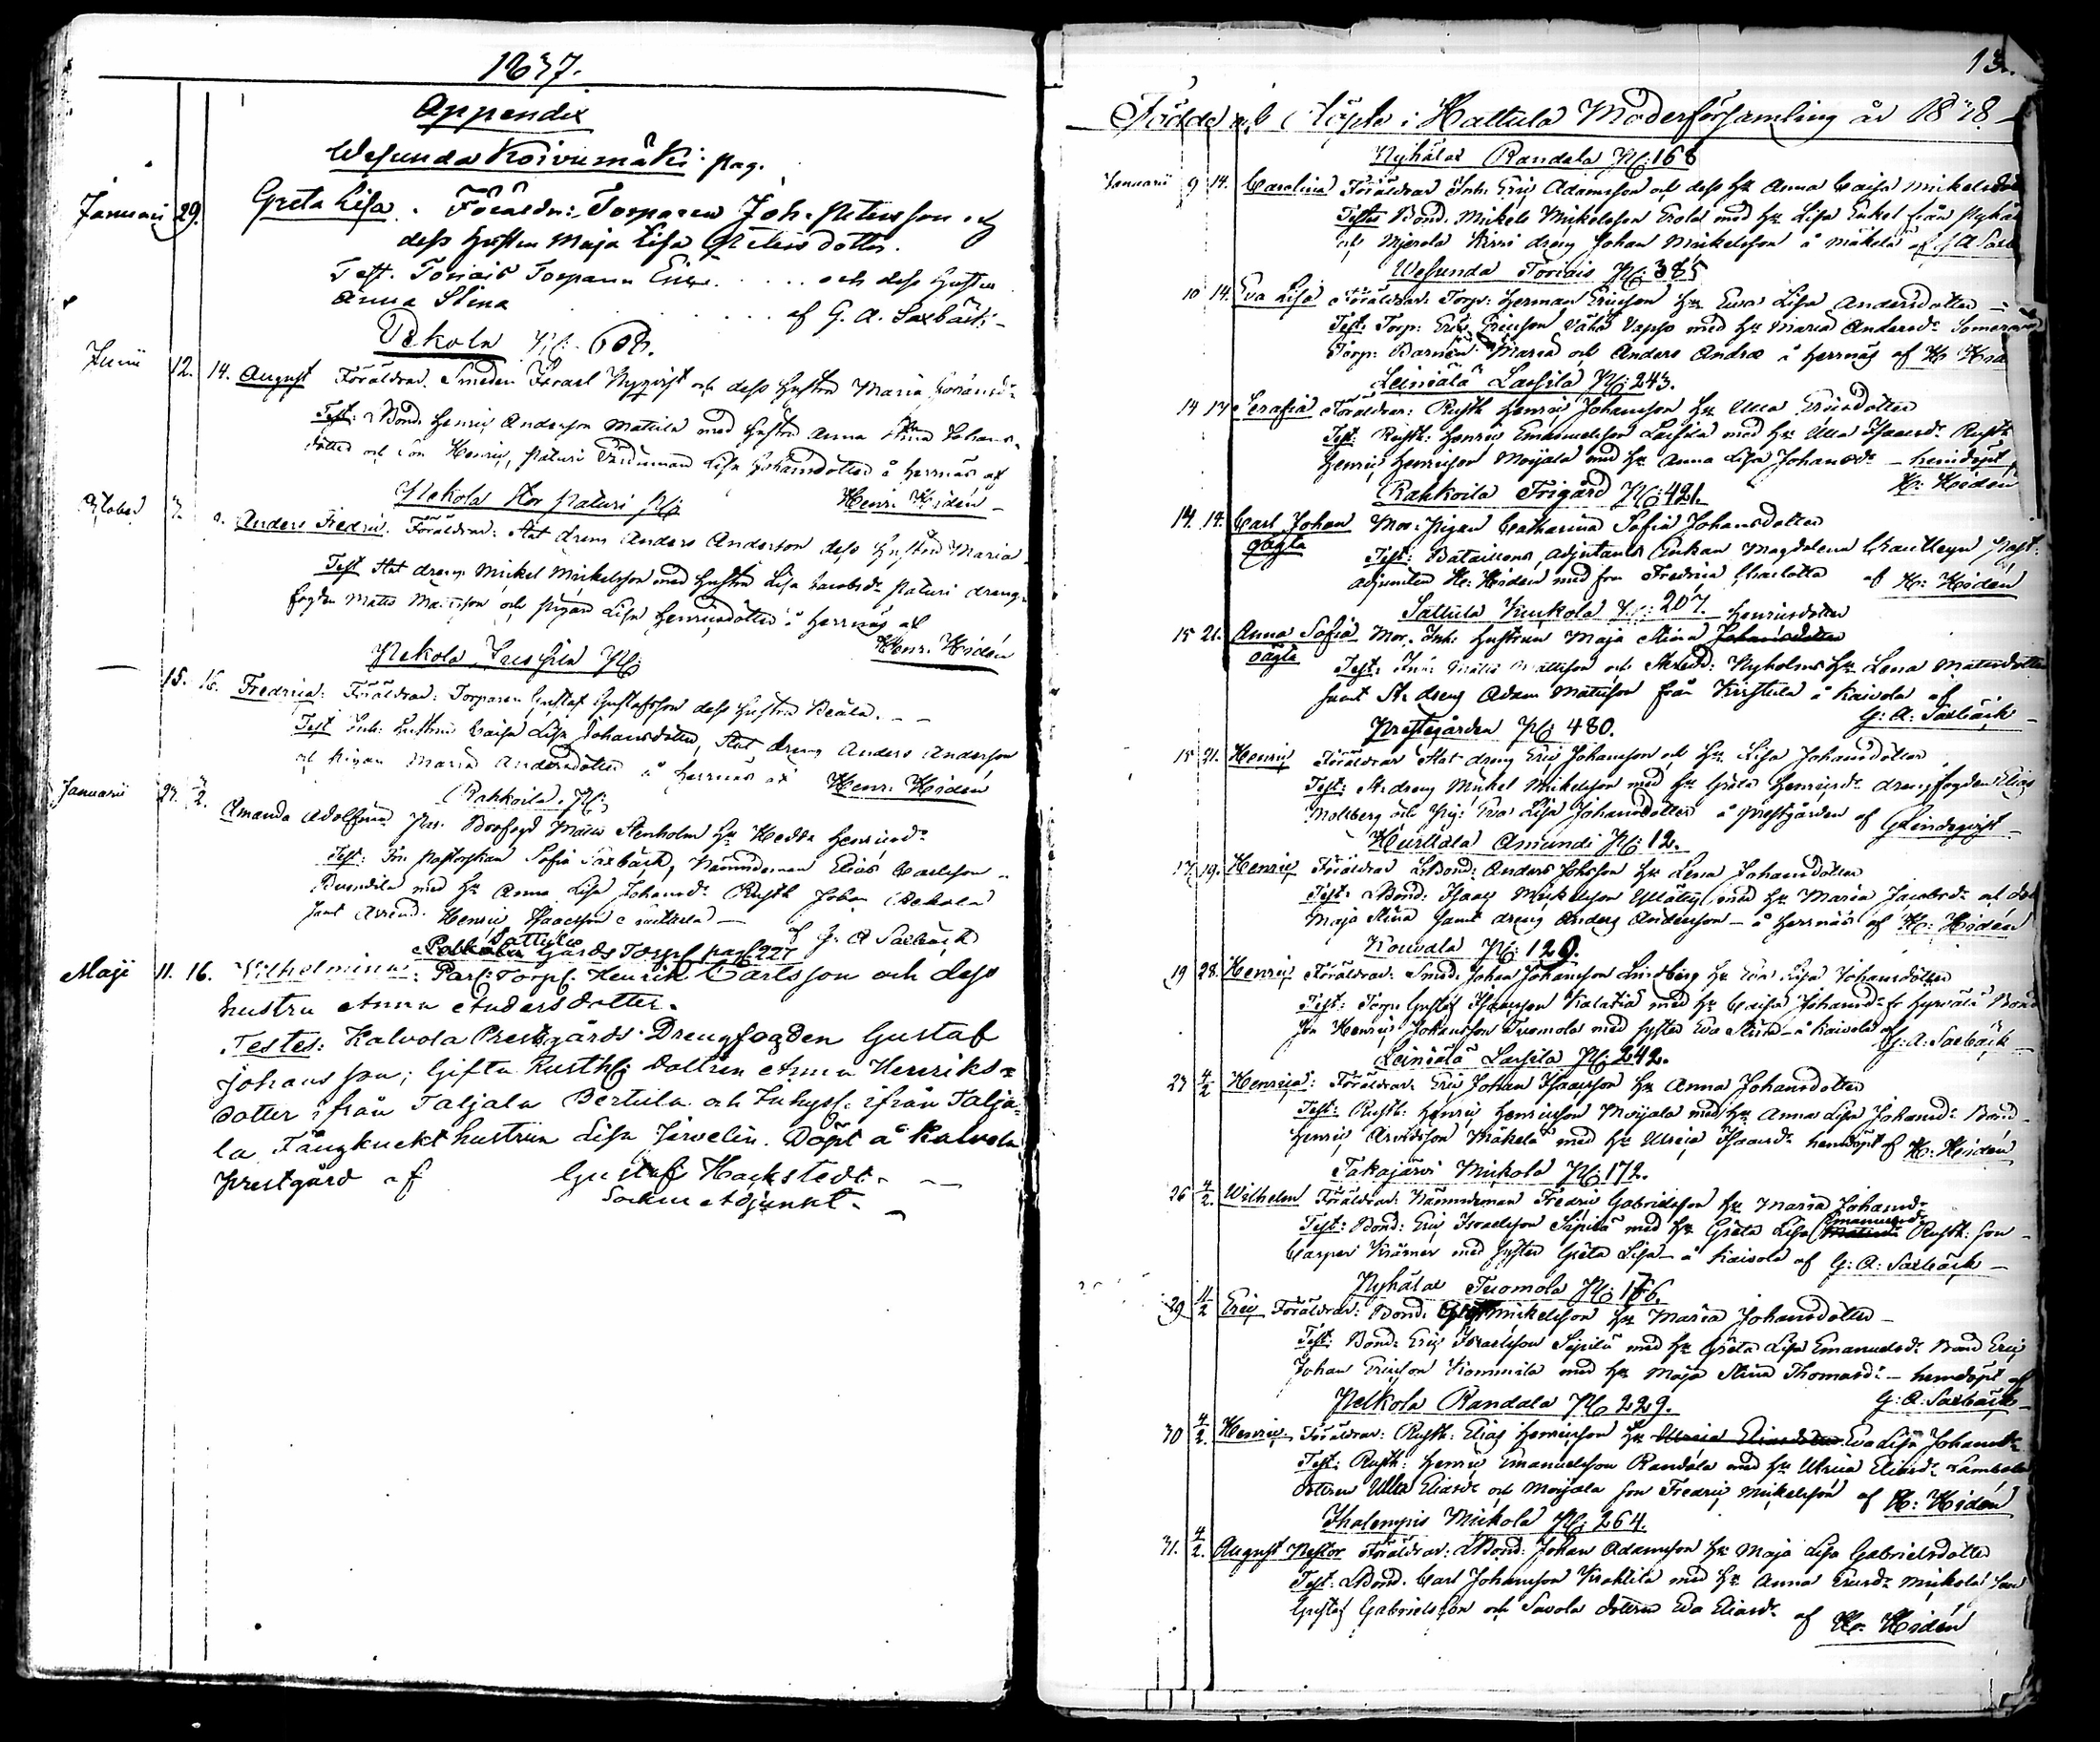 1837.
Appendix
Wesunda Koivumäki pag.
Januari 29. Greta Lisa. Föräldr: Torparen Joh. Petersson och
dess Hustru Maja Lisa Petersdotter.
Test. Toriais Torparen Eric ..... och dess Hustru
Anna Stina ........ af G. A. Saxbäck
Pekola No
Junii 12. 14. August Föräldrar. Smeden Israel Nyqvist och dess Hustru Maria
Test: Bond. Henric Andersson Mattila med Hustru Anna Stina Johans-
dotter och son Henric, Paturi Lisa Johansdotter å Herrnäs af
Henr. Hidén
Pekola Stor Paturi No
October 7. Anders Fredric. Föräldrar: Stat dreng Anders Anderson dess Hustru Maria
Test Stat dreng Mickel Mickelsson med Hustru Lisa Jacobsdr Paturi dreng-
fogden Matts Mattsson och Pigan Lisa Henricsdotter å Herrnäs af
Henr. Hidén
Pekola No
15. 16. Fredrica: Föräldrar: Torparen Gustaf Gustafsson dess Hustru Beata. - -
Test Inh: Hustrun Caisa Lisa Johansdotter, Stat dreng Anders Anderson
och Pigan Maria Andersdotter å Herrnäs af Henr. Hidén
Rahkoila. No
Januarii 27. 4/2. Amanda Adolfina Brofogd Matts Stenholm Hr Hedda Henricsdr
Test: Fru Pastorskan Sofia Saxbäck, Nämndeman Elias Carlsson
med Hr Anna Lisa Johansdr Rusth Johan Pekola
samt Arrend. Henric Isaacsson
af G. A Saxbäck
Sattula
Gårds Torp pag. 227
Maji 11. 16. Wilhelmina: Par: Torp: Henrik Carlsson och dess
hustru Anna Andersdotter.
Testes: Kalvola Prestgårds Drengfogden Gustaf
Johansson; Gifta Rusth: Dottren Anna Henriks-
dotter ifrån Taljala Bertula och Inhys: ifrån Talja-
la Långknekt hustrun Lisa Järvelin. Döpt å Kalvola
Prestgård af Gustaf Hackstedt. —
Socken Adjunkt. —
13.
Födde och Döpte i Hattula Moderförsamling år 1838.
Nyhälä Randala No 168
Januarii 9 14. Carolina Föräldrar Inh: Eric Adamsson och dess Hr Anna Caisa Mickelsdr
Testes Bond. Mickels Mickelsson Erola med Hr Lisa Enkel från Nyhälä
och Mjerola Kirri dreng Johan Mickelsson å Mäkelä af G A Saxb
Wesunda Toriais No 385
10 14. Eva Lisa Föräldrar: Torp: Herman Ericsson Hr Eva Lisa Andersdotter —
Test: Torp: Eric Ericsson Vähä Vappo med Hr Maria Andersdr
Torp: Barnen Maria och Anders Andræ å Herrnäs af H: Hidé
Leiniälä Lassila No 243.
14 17 Serafia Föräldrar: Rusth Henric Johansson Hr Ulla Ericsdotter
Test: Rusth: Henric Emanuelsson Lassila med Hr Ulla Isaacsdr Rusth
Henric Henricsson Moijala med Hr Anna Lisa Johansdr — hemdöpt
H: Hidén
Rahkoila Frigård No 421.
14. 14. Carl Johan Mor: Pigan Catharina Sofia Johansdotter
oägta Test: Bataillons Adjutants Enkan Magdalena Past:
adjuncten H: Hidén med fru Fredrica Charlotta af H: Hidén
Sattula Kuukola No: 207. Henricsdotter
15 21. Anna Sofia Mor. Inh: Hustrun Maja Stina Johansdotter
oägta Test: Inh: Matts Mattsson och Skredd: Nyholms Hr Lena Mattsdotter
samt St. dreng Adam Mattsson från Kirstula å Kaivola af
G: A: Saxbäck —
Prestegården No 480.
15 21. Henric Föräldrar Stat dreng Eric Johansson och Hr Lisa Johansdotter
Test: St. dreng Mickel Mickelsson med Hr Greta Henricsdr drengfogden Elias
Moltberg och Pig: Eva Lisa Johansdotter å Prestgården af G Lindeqvist
Hurttala Amundi No 12.
17 19. Henric Föräldrar LBond: Anders Johsson Hr Lena Johansdotter
Test: LBond: Isaac Mickelsson med Hr Maria Jacobsdr och
Maja Stina samt dreng Anders Andersson — å Herrnäs af H: Hidén
Kouvala No 129.
19 28. Henric Föräldrar. Smed. Johan Johansson Lindberg Hr Eva Lisa Johansdotter
Test: Torp: Gustaf Isacsson Kalatia med Hr Caisa Johansdr Bond
son Henric Johansson Tuomola med syster Eva Stina — å Kaivola af
G: A: Saxbäck —
Leiniälä Lassila No 242.
27 4/2 Henrica: Föräldrar Eric Johan Isaacsson Hr Anna Johansdotter
Test: Rusth: Henric Henricsson Moijala med Hr Anna Lisa Johansdr Bond
Henric Arvidsson Mäkelä med Hr Ulrica Isaacsdr hemdöpt af H: Hidén
Takajärvi Mickola No 172.
26 4/2. Wilhelm Föräldrar. Nämndeman Fredric Gabrielsson Hr Maria Johansdr
Emanuelsdr
Test: Bond: Eric Israelsson Sipilä med Hr Greta Lisa Rusth: son
Casper Krämer med syster Greta Lisa — å Kaivola af G: A: Saxbäck —
Nyhälä Tuomola No 166.
29 11/2 Eric Föräldrar: Bond. Mickelsson Hr Maria Johansdotter —
Test: Bond: Eric Israelsson Sipilä med Hr Greta Lisa Emanuelsdr Bond Eric
Johan Ericsson Kommila med Hr Maja Stina Thomasdr — hemdöpt af
G: A: Saxbäck
Pelkola Randala No 229.
30 4/2. Henric Föräldrar: Rusth: Elias Henricsson Hr Eva Lisa Johansdr
Test: Rusth: Henric Emanuelsson Randala med Hr Ulrica Eliasdr
dottren Ulla Eliasdr och Moijala son Fredric Mickelsson af H: Hidén
Ihalempis Mickola No 264.
31. 4/2. August Nestor Föräldrar: LBond: Johan Adamsson Hr Maja Lisa Gabrielsdotter
Test: LBond. Carl Johansson Krahtila med Hr Anna Ericsdr Mickola son
Gustaf Gabrielsson och Savola dottren Eva Eliasdr af H: Hidén